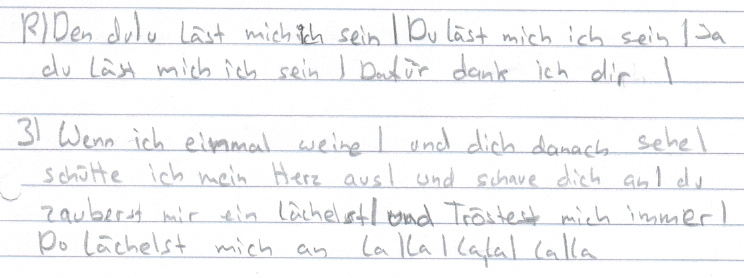 R) Den dulu läst mich ich sein | Du läst mich ich sein | Ja
du läst mich ich sein | Dafür dank ich dir |
3) Wenn ich einmal weine | und dich danach sehe |
schütte ich mein Herz aus | und schaue dich an | du
zauberst mir ein lächelst | und Tröstest mich immer |
Do lächelst mich an La | La | La,La | LaLLa